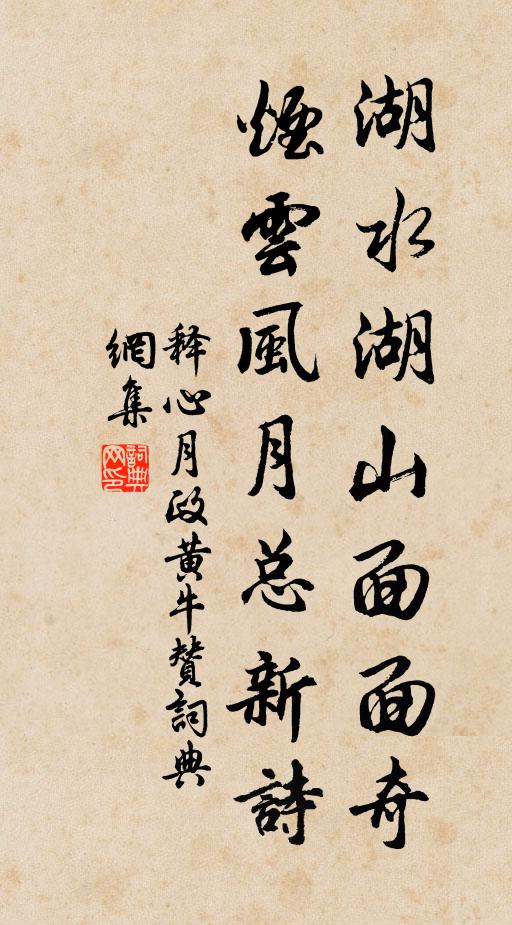 湖水湖山面面奇
煙雲風月总新詩
释心月政黄牛賛詞典
網集
詞典
网印